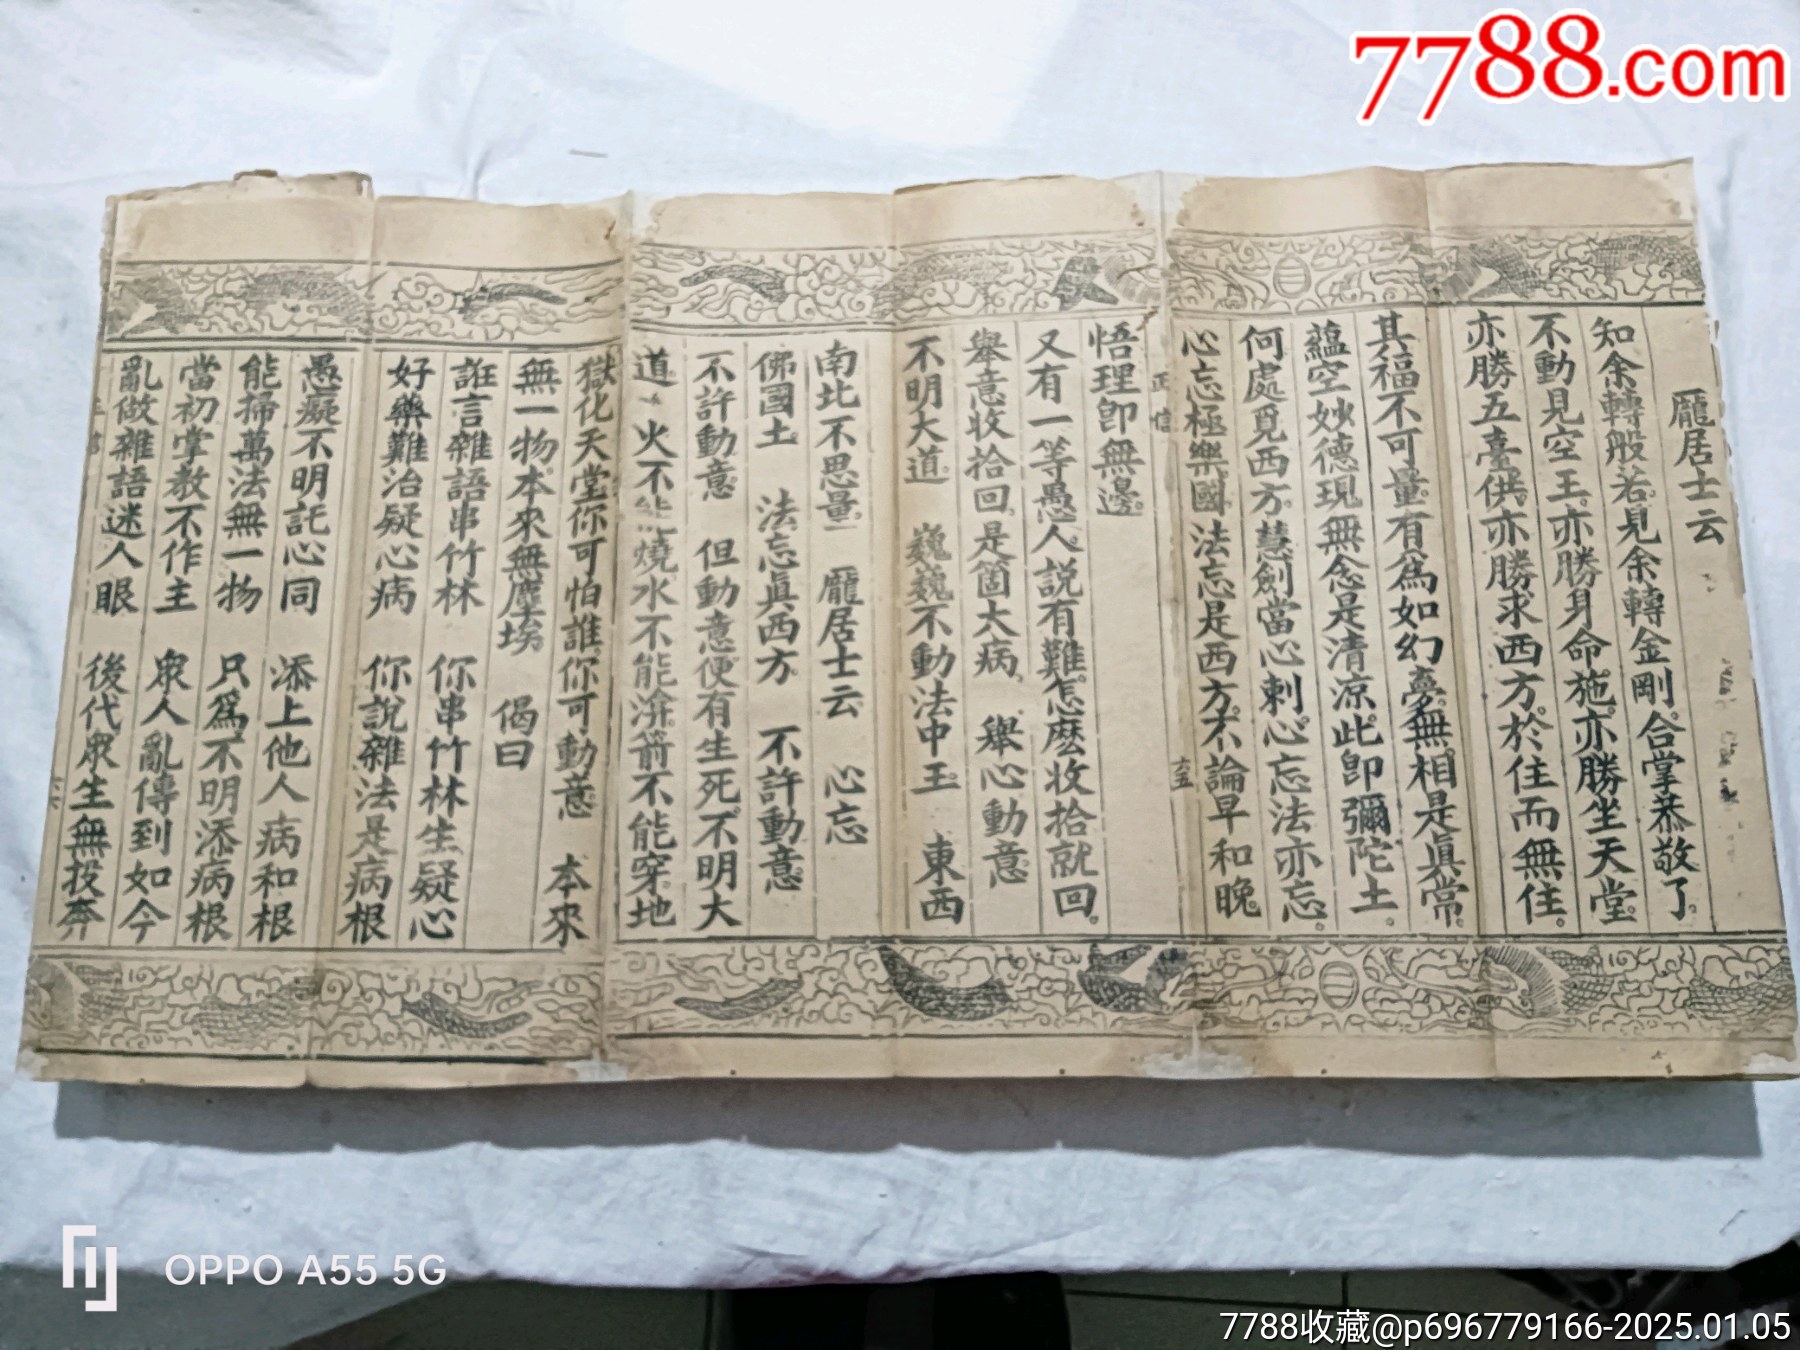 7788.com
龎居士云
知余轉般若。見余轉金剛。合掌恭敬了。
不動見空王。亦勝身命施。亦勝坐天堂。
亦勝五臺供。亦勝求西方。於住而無住。
其福不可量。有爲如幻夢。無相是眞常。
蘊空妙德現無念是清凉此卽彌陀土。
何處覓西方。慧劍當心刺心忘法亦忘。
心忘極樂國法忘是西方。不論早和晚
正信
六五
悟理卽無邊。
又有一等愚人。説有難。怎麽收拾就回。
舉意收拾回。是箇大病。 舉心動意
不明大道 巍巍不動法中王 東西
南北不思量 龎居士云 心忘
佛國土 法忘眞西方 不許動意
不許動意 但動意便有生死。不明大
道 火不能燒。水不能渰。箭不能穿。地
獄化天堂你可怕誰。你可動意 本來
無一物。本來無塵埃 偈曰
誑言雜語串竹林 你串竹林生疑心
好藥難治疑心病 你說雜法是病根
愚癡不明託心同 添上他人病和根
能掃萬法無一物 只爲不明添病根
當初掌教不作主 衆人亂傳到如今
亂做雜語迷人眼 後代衆生無投奔
OPPO A55 5G
7788收藏@p696779166-2025.01.05